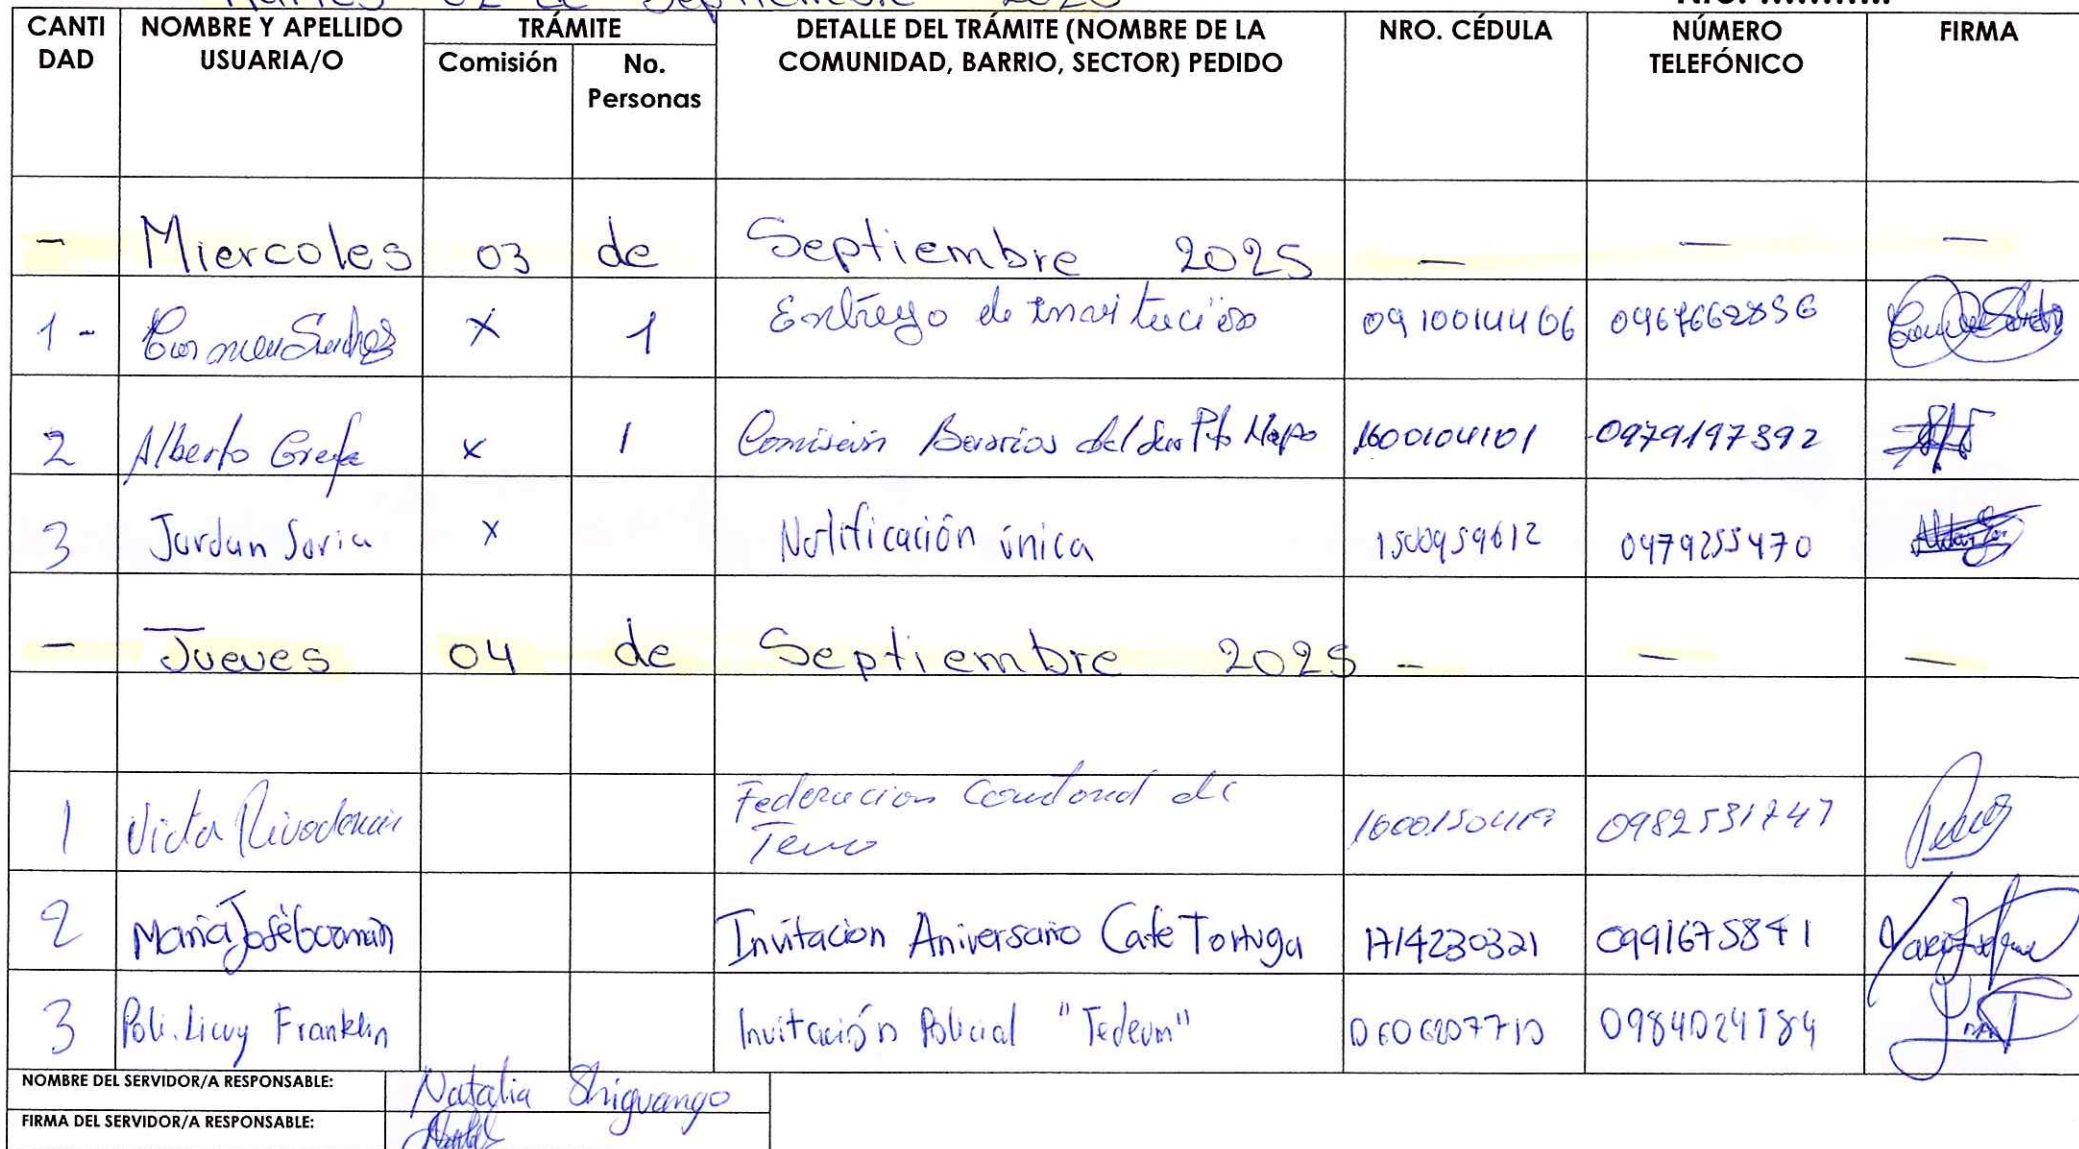 Martes 02 de Septiembre 2025
Nro. ............
CANTI DAD NOMBRE Y APELLIDO USUARIA/O TRÁMITE DETALLE DEL TRÁMITE (NOMBRE DE LA COMUNIDAD, BARRIO, SECTOR) PEDIDO NRO. CÉDULA NÚMERO TELEFÓNICO FIRMA
Comisión No. Personas
- Miercoles 03 de Septiembre 2025 - - -
1 - Carmen Sanchez x 1 Entrega de invitación 0910014406 0967662856
2 Alberto Grefa x 1 Comisión Barrios del Pto Napo 1600104101 0979197392
3 Jordan Soria x Notificación única 1500959612 0979255470
- Jueves 04 de Septiembre 2025 - - -
1 Victor Rivadeneira Federacion Cantonal de
Tena 0982531747
2 María José Guzmán Invitacion Aniversario Cafe Tortuga 1714230321 0991675841
3 Poli. Licuy Franklin Invitación Policial "Tedeum" 0984024184
NOMBRE DEL SERVIDOR/A RESPONSABLE: Natalia Shiguango
FIRMA DEL SERVIDOR/A RESPONSABLE: